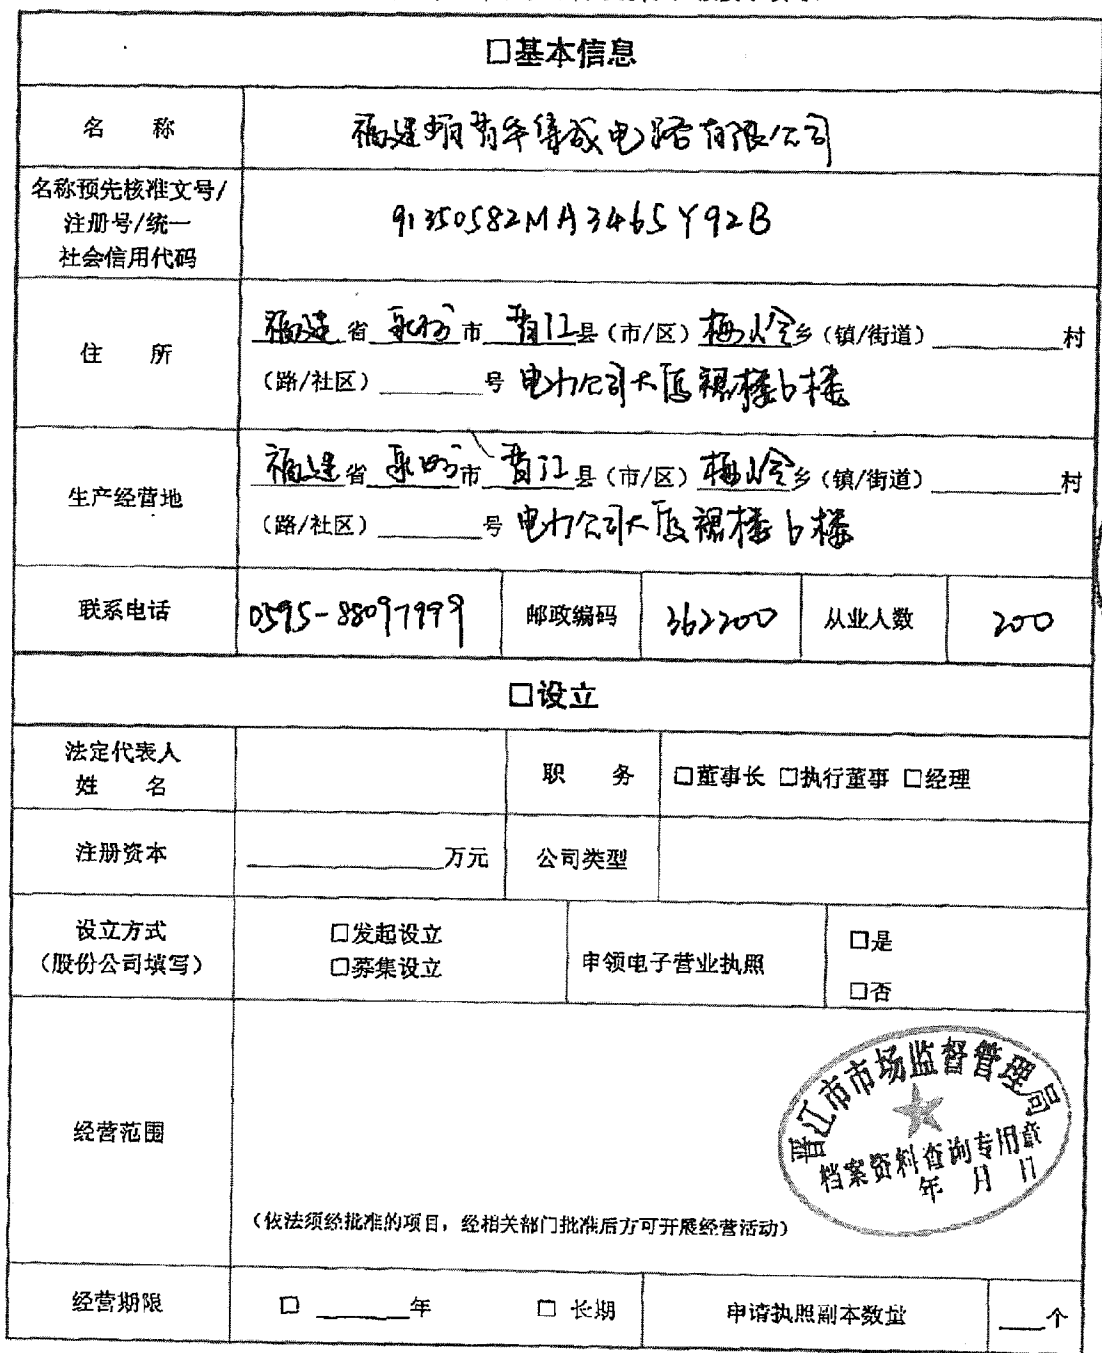 □基本信息
名 称
福建省晋华集成电路有限公司
名称预先核准文号/
注册号/统一
社会信用代码
91350582MA3465Y92B
住 所
福建省 泉州市 晋江县（市/区）梅岭乡（镇/街道）______村
（路/社区）______号 电力公司大厦裙楼6楼
生产经营地
福建省 泉州市 晋江县（市/区）梅岭乡（镇/街道）______村
（路/社区）______号 电力公司大厦裙楼6楼
联系电话 0595-88097999 邮政编码 362200 从业人数 200
□设立
法定代表人
姓 名
职 务 □董事长 □执行董事 □经理
注册资本 ______万元 公司类型
设立方式
（股份公司填写）
□发起设立
□募集设立
申领电子营业执照
□是
□否
经营范围
晋江市市场监督管理局
档案资料查询专用章
年 月 日
（依法须经批准的项目，经相关部门批准后方可开展经营活动）
经营期限 □ ______年 □ 长期 申请执照副本数量 ___个